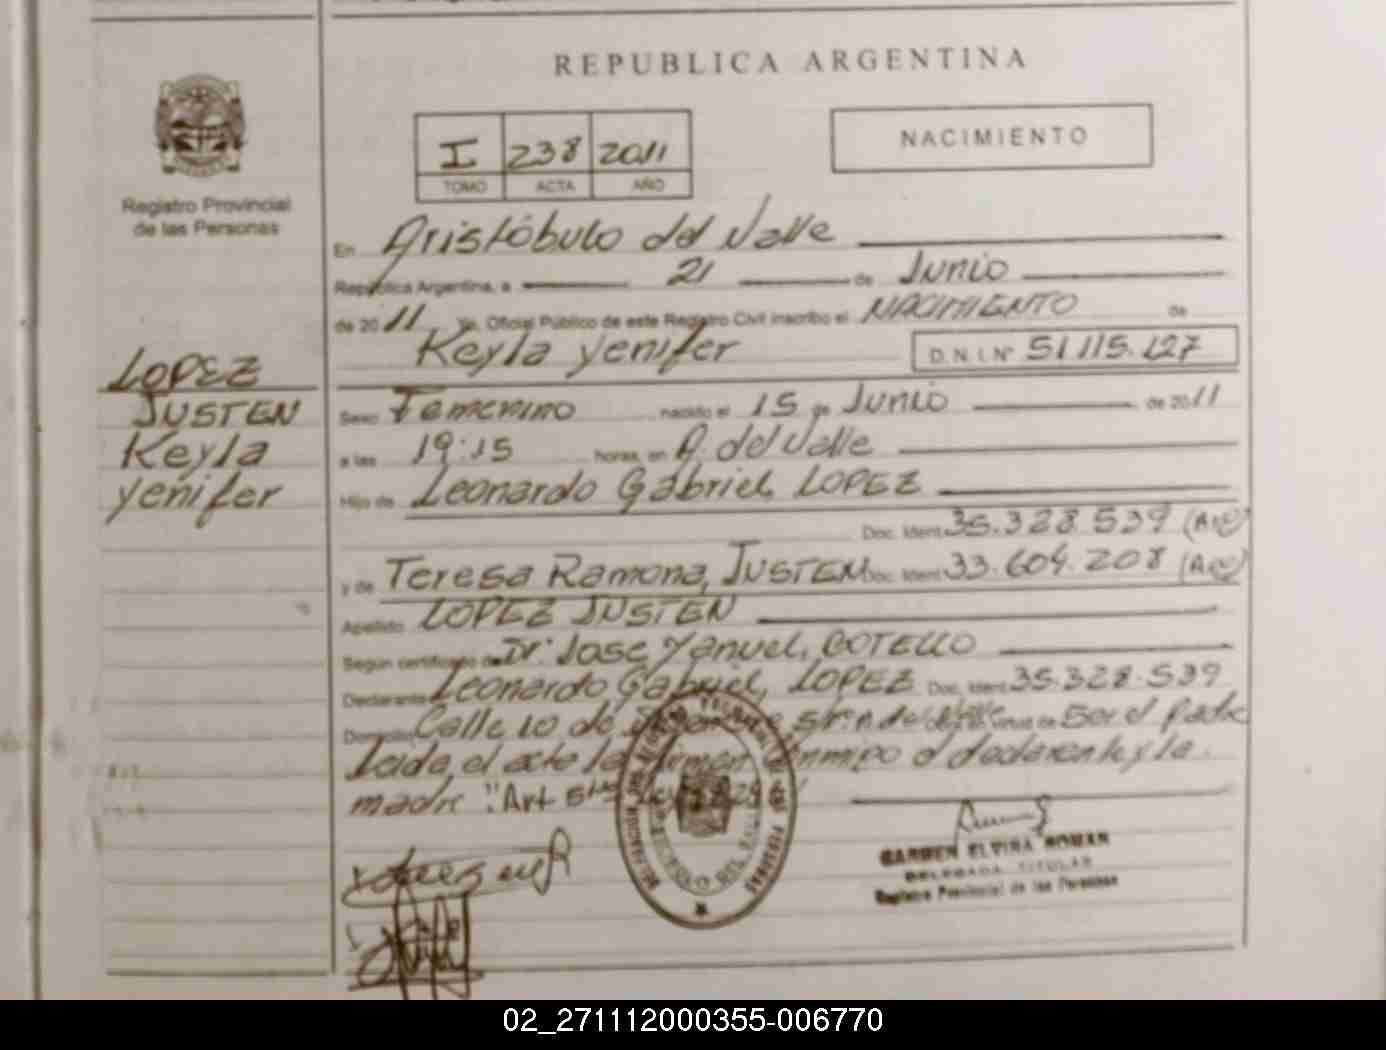 REPUBLICA ARGENTINA
I 238 2011
TOMO ACTA AÑO
NACIMIENTO
Registro Provincial
de las Personas
LOPEZ
JUSTEN
Keyla
yenifer
En Aristóbulo del Valle
República Argentina, a 21 de Junio
de 2011 Yo, Oficial Público de este Registro Civil inscribo el NACIMIENTO de
Keyla yenifer D.N.I.Nº 51.115.127
Sexo Femenino nacido el 15 de Junio de 2011
a las 19:15 horas, en A. del Valle
Hijo de Leonardo Gabriel, LOPEZ
Doc. Ident. 35.328.539
y de Teresa Ramona, JUSTEN Doc. Ident. 33.604.208
Apellido LOPEZ JUSTEN
Según certificado de Dr. Jose Manuel, COTELLO
Declarante Leonardo Gabriel, LOPEZ Doc. Ident. 35.328.539
Domicilio Calle 10 de s/nº A. del Valle ser el Padre
Leida el acta la firman conmigo el declarante y la
madre "Art 5
CARMEN ELVIRA ROMAN
DELEGADA TITULAR
Registro Provincial de las Personas
02_271112000355-006770